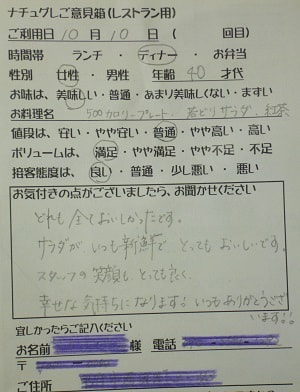 ナチュグレご意見箱(レストラン用)
ご利用日 10月10日( 回目)
時間帯 ランチ・ディナー・お弁当
性別 女性・男性 年齢 40 才代
お味は、美味しい・普通・あまり美味しくない・まずい
お料理名 500カロリープレート・若どりサラダ・紅茶
値段は、安い・やや安い・普通・やや高い・高い
ボリュームは、満足・やや満足・やや不足・不足
接客態度は、良い・普通・少し悪い・悪い
お気付きの点がございましたら、お聞かせください
どれも全ておいしかったです。
サラダがいつも新鮮で とってもおいしいです。
スタッフの笑顔も、とっても良く、
幸せな気持ちになります!いつもありがとうござ
います!!
宜しかったらご記入ください
お名前 様 電話
〒
ご住所